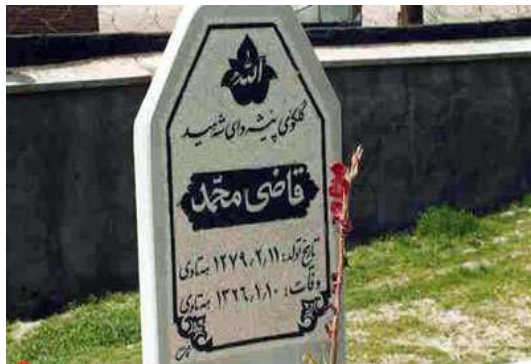 الله
گلکۆی پێشەوای شەهید
قاضی محمّد
تاریخ تولد: ۱۲۷۹٫۲٫۱۱ هەتاوی
وفات: ۱۳۲۶٫۱٫۱۰ هەتاوی